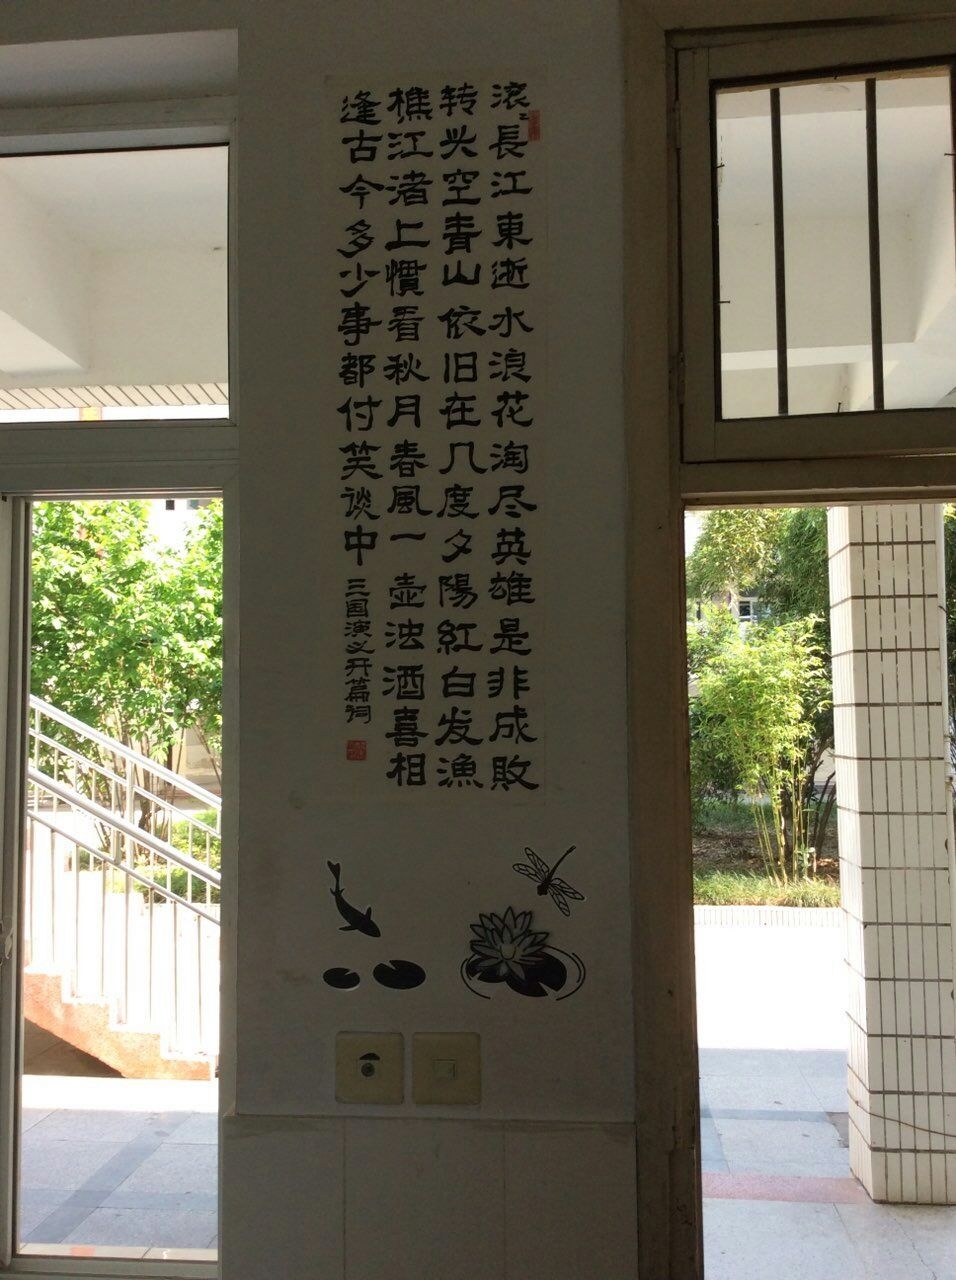 滚〻長江東逝水浪花淘尽英雄是非成敗
转头空青山依旧在几度夕陽紅白发漁
樵江渚上慣看秋月春風一壶浊酒喜相
逢古今多少事都付笑谈中
三国演义开篇词